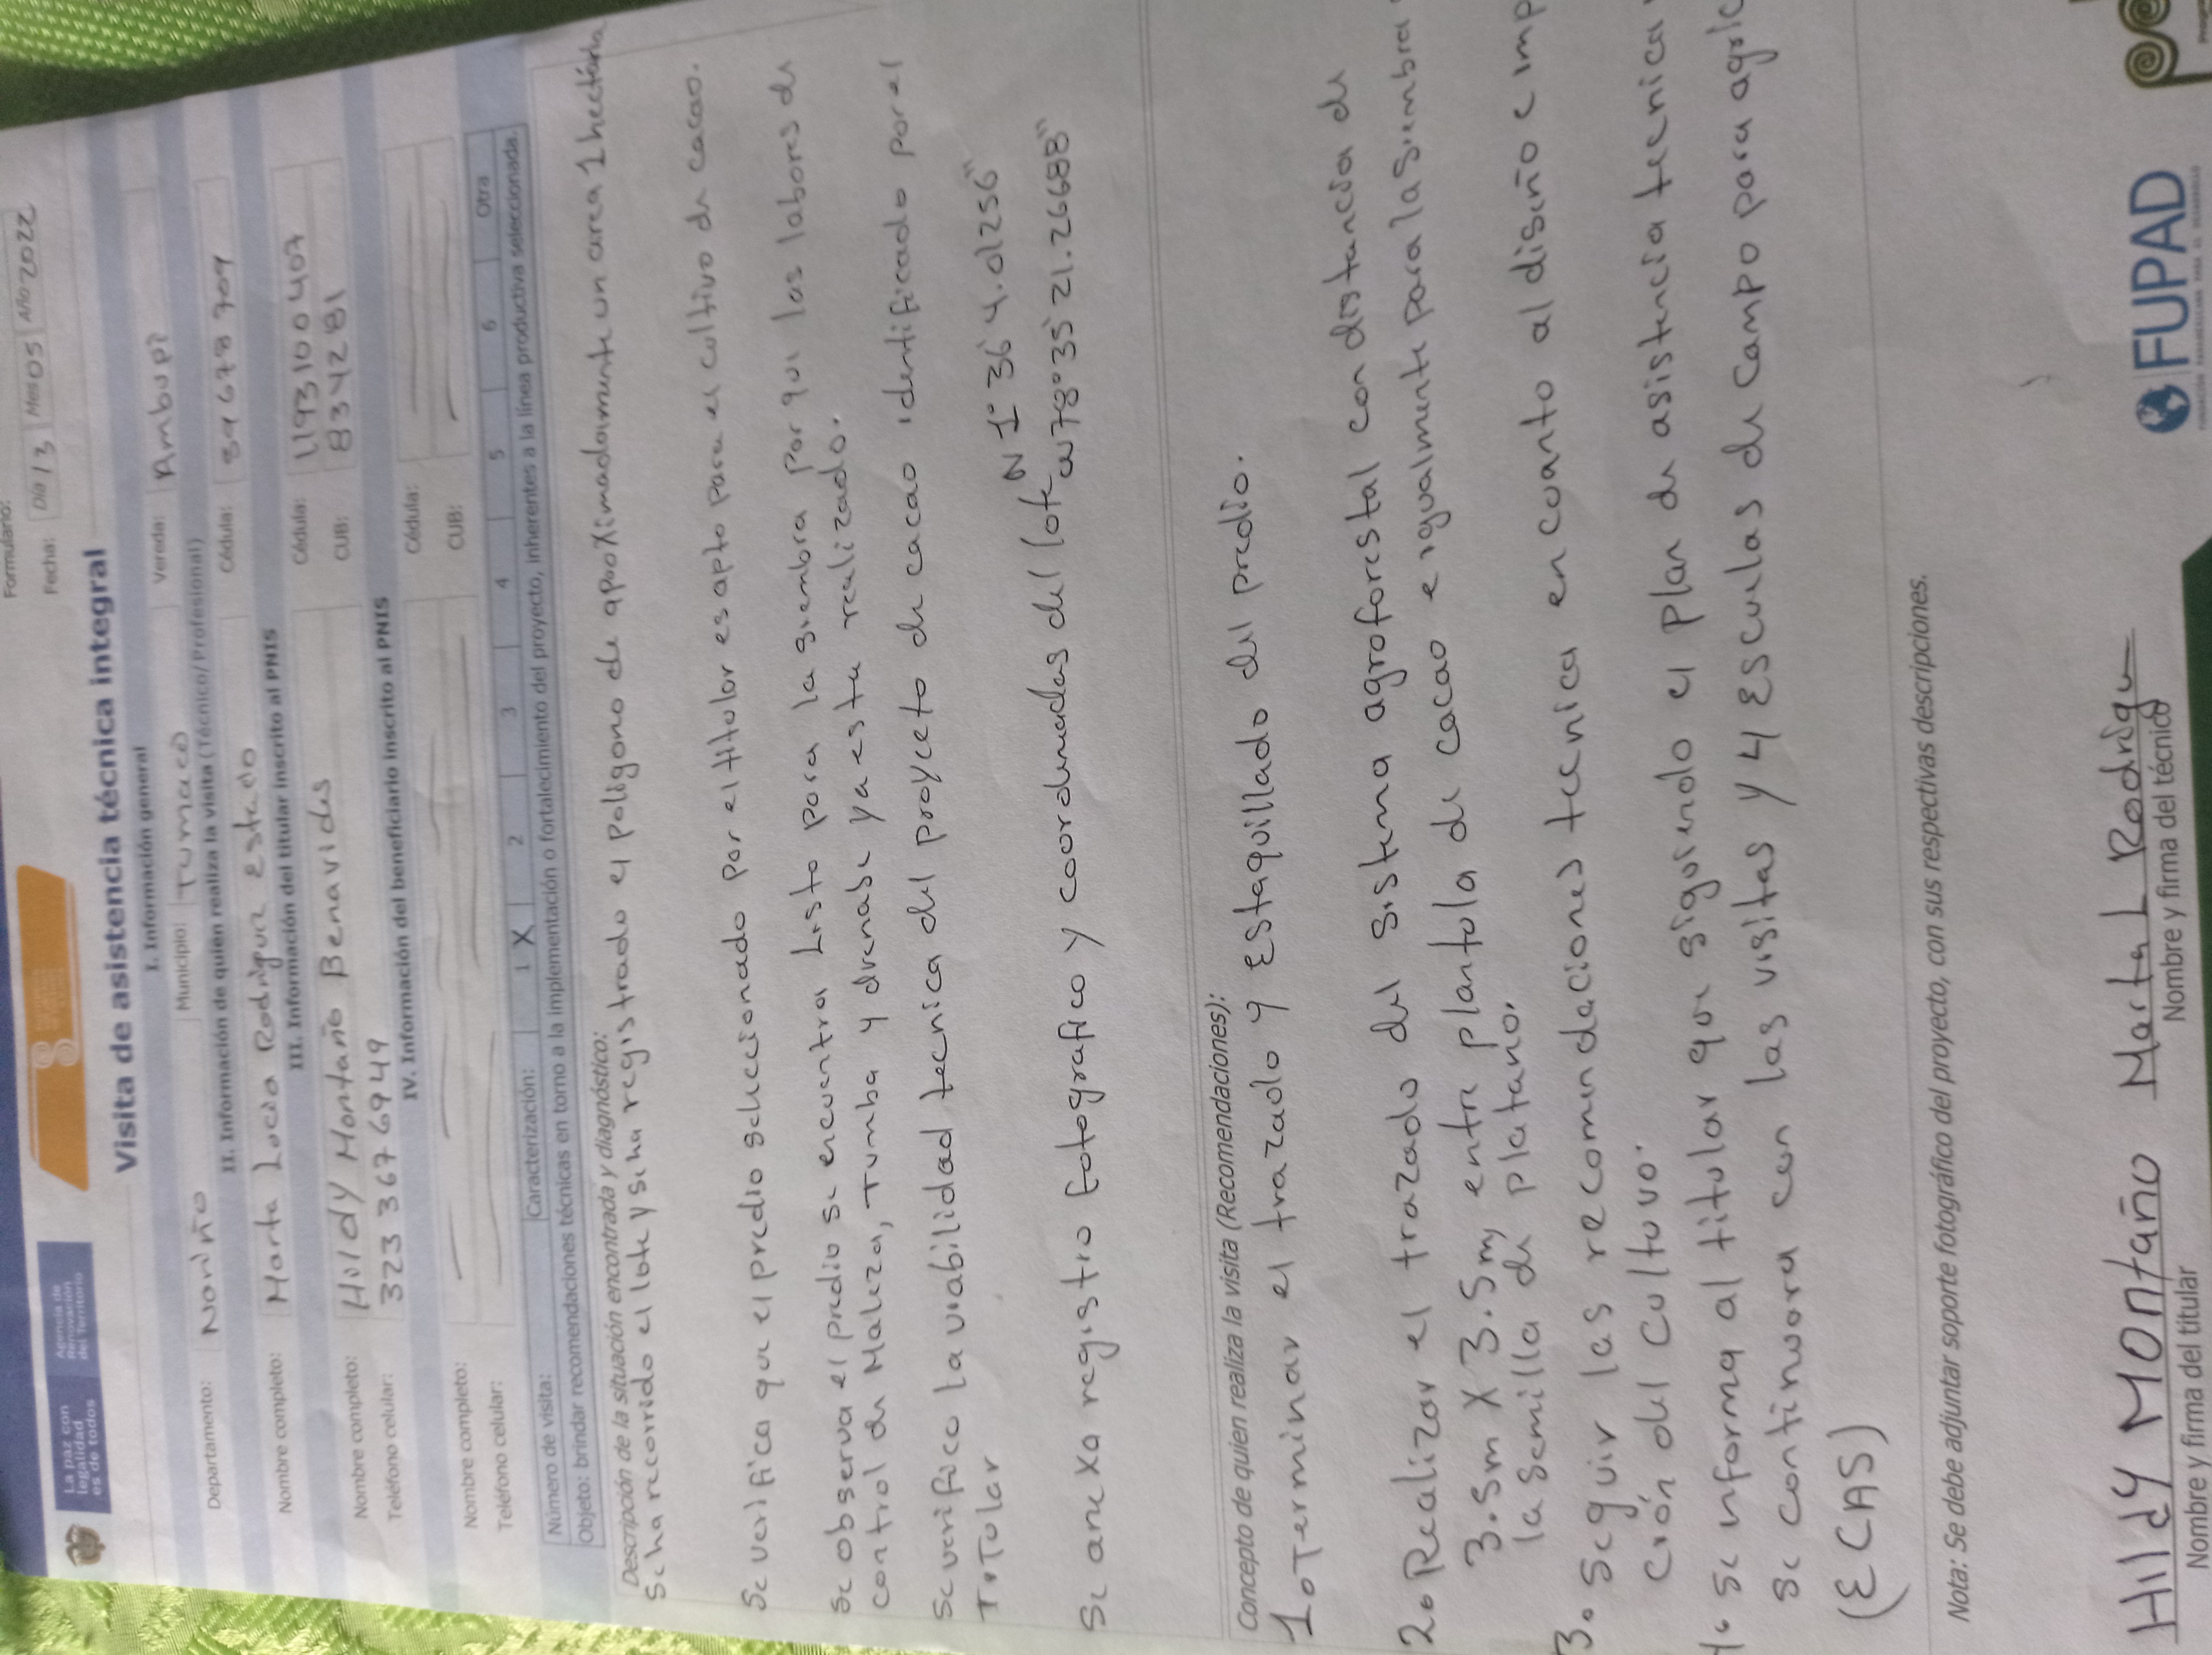 Formulario:
Fecha: Día 13 Mes 05 Año 2022
La paz con
legalidad
es de todos
Agencia de
Renovación
del Territorio
Visita de asistencia técnica integral
I. Información general
Departamento: Nariño Municipio: Tumaco Vereda: Ambupi
II. Información de quien realiza la visita (Técnico/Profesional)
Nombre completo: Marta Lucia Rodriguez Estado Cédula: 59678709
III. Información del titular inscrito al PNIS
Nombre completo: Hildy Montaño Benavides Cédula: 1193100407
Teléfono celular: 3233676949 CUB: 8334281
IV. Información del beneficiario inscrito al PNIS
Nombre completo: Cédula:
Teléfono celular: CUB:
Número de visita: Caracterización: 1 X 2 3 4 5 6 Otra
Objeto: brindar recomendaciones técnicas en torno a la implementación o fortalecimiento del proyecto, inherentes a la línea productiva seleccionada.
Descripción de la situación encontrada y diagnóstico:
Se ha recorrido el lote y se ha registrado el poligono de aproximadamente un area 1 hectárea
Se verifica que el predio seleccionado por el titular es apto para el cultivo de cacao.
Se observa el predio se encuentra listo para la siembra por que las labores de
control de Maleza, Tumba y drenabe ya esta realizado.
Se verifico la viabilidad tecnica del proyecto de cacao identificado por el
TiTular
Se anexa registro fotografico y coordenadas del lote N 1° 36' 4.01256"
W 78° 35' 21.26688"
Concepto de quien realiza la visita (Recomendaciones):
1. Terminar el trazado y Estaquillado del predio.
2. Realizar el trazado del sistema agroforestal con distancia de
3.5m X 3.5m entre plantula de cacao e igualmente para la siembra
la semilla de platano.
3. Seguir las recomendaciones tecnica en cuanto al diseño e imp
ción del cultivo.
4. Se informa al titular que siguiendo el plan de asistencia tecnica
se continuara con las visitas y 4 Escuelas de Campo para agric
(ECAS)
Nota: Se debe adjuntar soporte fotográfico del proyecto, con sus respectivas descripciones.
Hildy Montaño Marta L Rodriguez
Nombre y firma del titular Nombre y firma del técnico
FUPAD